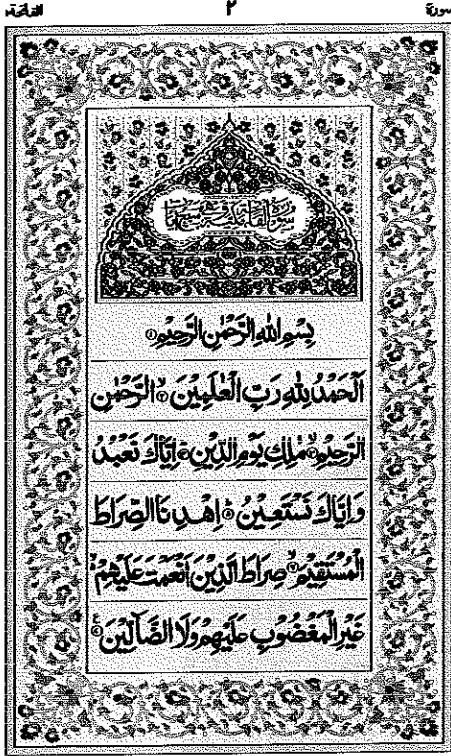 سورة ٢ الفاتحة
سورة الفاتحة مكية
بِسْمِ اللهِ الرَّحْمٰنِ الرَّحِيْمِ ۝١
اَلْحَمْدُ لِلّٰهِ رَبِّ الْعٰلَمِيْنَ ۝٢ الرَّحْمٰنِ
الرَّحِيْمِ ۝٣ مٰلِكِ يَوْمِ الدِّيْنِ ۝٤ اِيَّاكَ نَعْبُدُ
وَاِيَّاكَ نَسْتَعِيْنُ ۝٥ اِهْدِنَا الصِّرَاطَ
الْمُسْتَقِيْمَ ۝٦ صِرَاطَ الَّذِيْنَ اَنْعَمْتَ عَلَيْهِمْ
غَيْرِ الْمَغْضُوْبِ عَلَيْهِمْ وَلَا الضَّآلِّيْنَ ۝٧